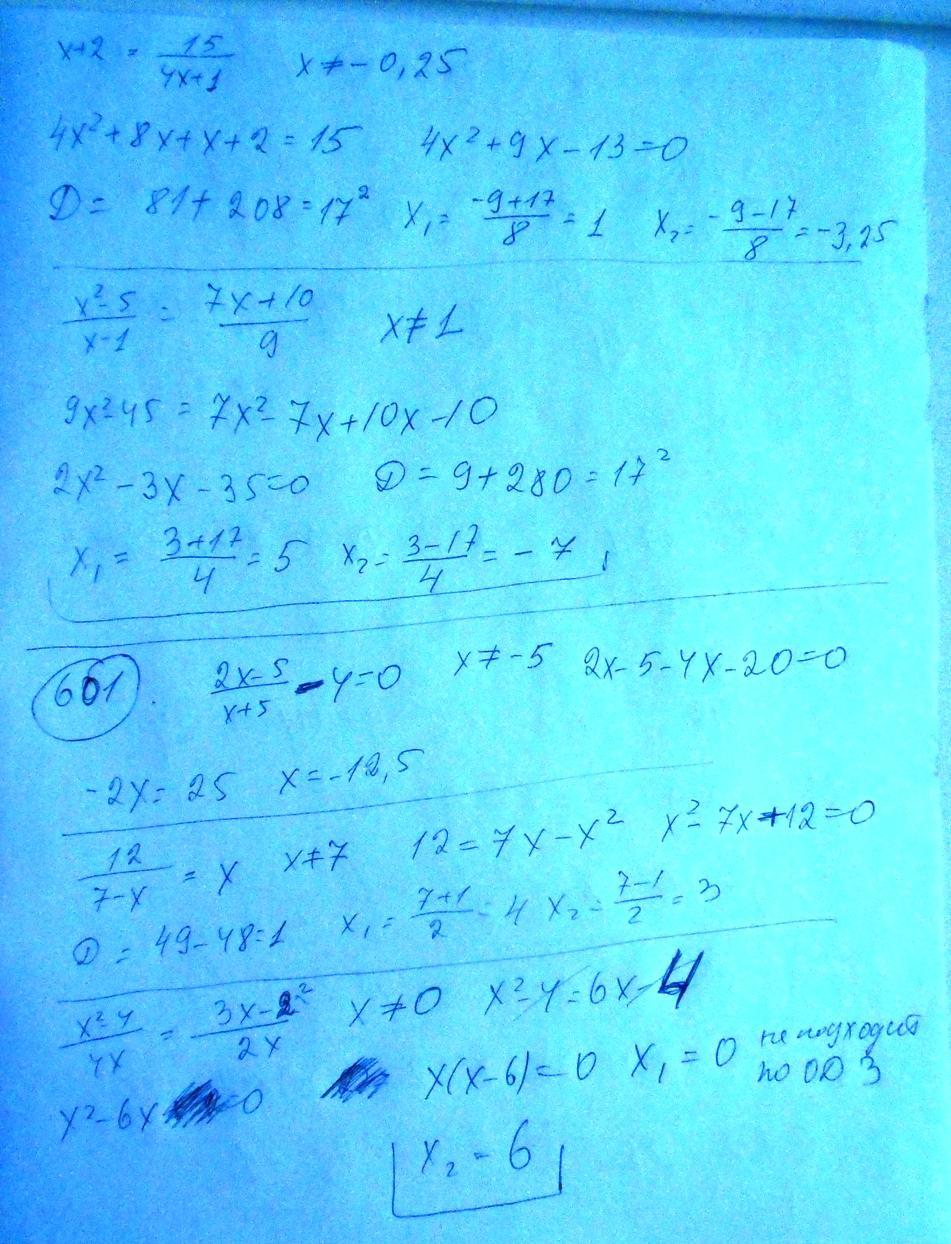 x+2 = 15/(4x+1) x ≠ -0,25
4x²+8x+x+2=15 4x²+9x-13=0
D = 81+208=17² x₁= (-9+17)/8 = 1 x₂= (-9-17)/8 = -3,25
(x²-5)/(x-1) = (7x+10)/9 x≠1
9x²-45 = 7x²-7x+10x-10
2x²-3x-35=0 D=9+280=17²
x₁ = (3+17)/4 = 5 x₂= (3-17)/4 = -7
601. (2x-5)/(x+5) -4=0 x≠-5 2x-5-4x-20=0
-2x=25 x=-12,5
12/(7-x) = x x≠7 12=7x-x² x²-7x+12=0
D = 49-48=1 x₁ = (7+1)/2 = 4 x₂ = (7-1)/2 = 3
(x²-4)/4x = (3x-2)/2x x≠0 x²-4=6x-4
x²-6x=0 x(x-6)=0 x₁=0 не подходит
по ОДЗ
x₂ = 6